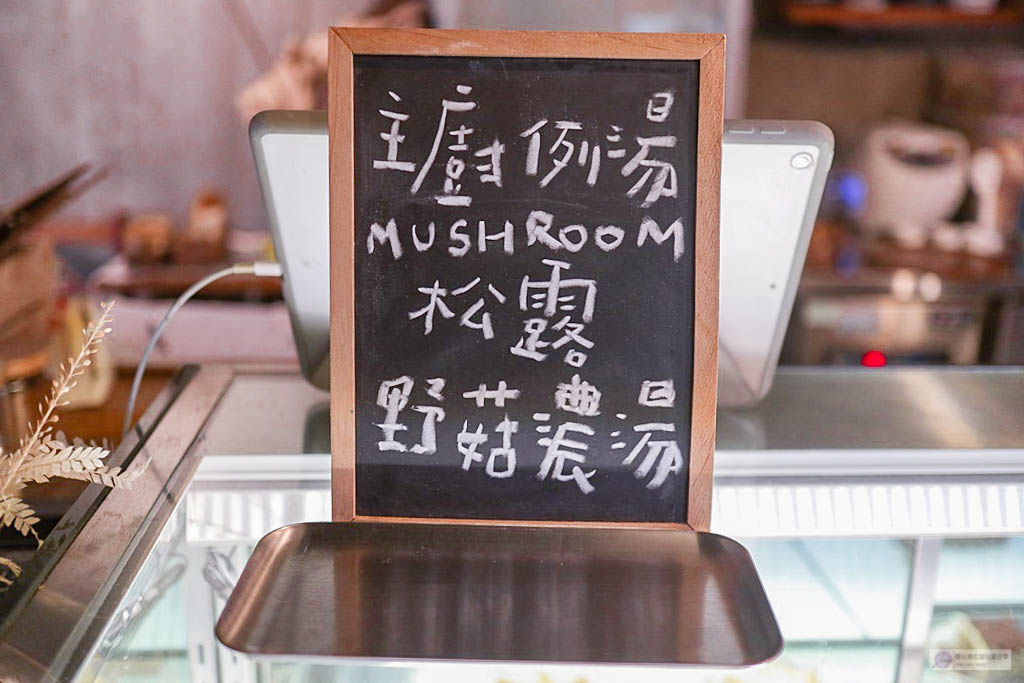 主廚例湯
MUSHROOM
松露
野菇濃湯